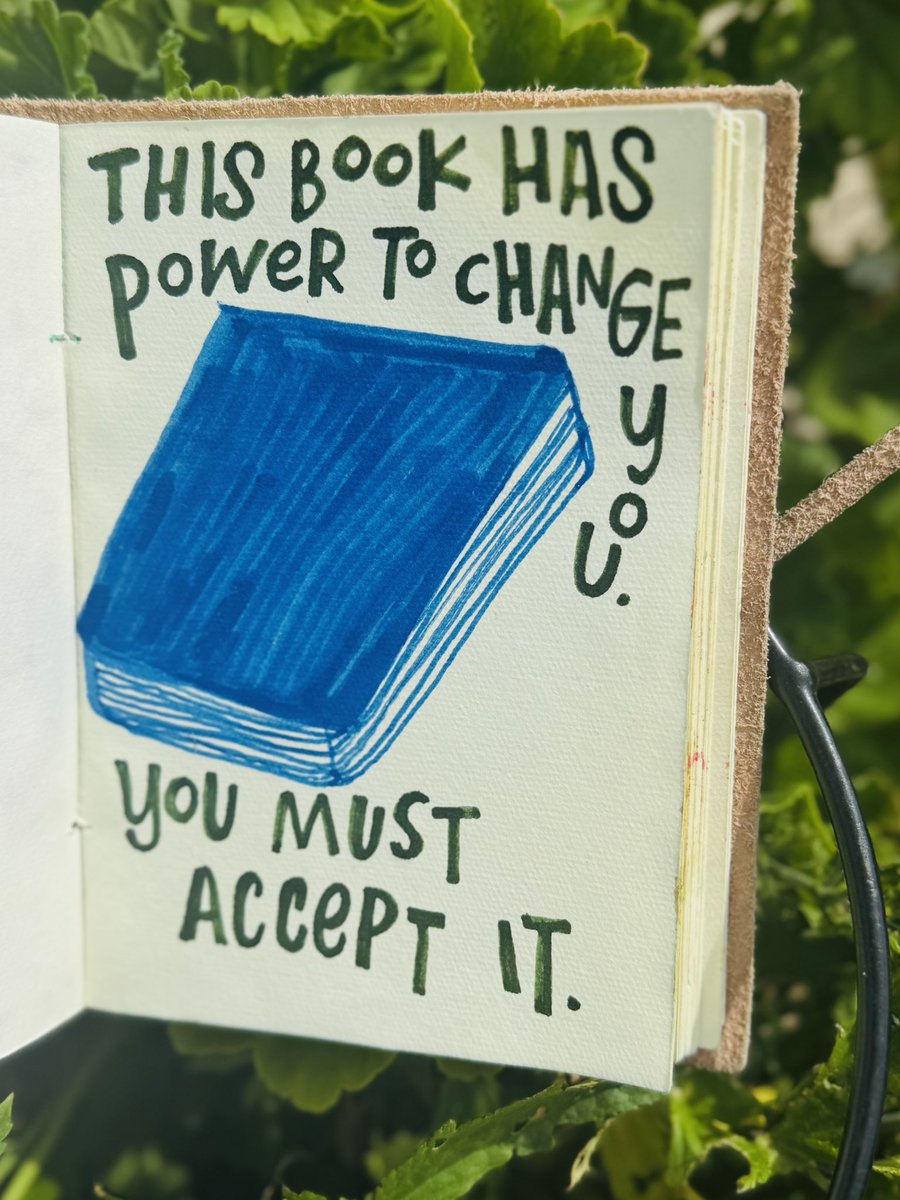 THIS BOOK HAS
POWER TO CHANGE
YOU.
YOU MUST
ACCEPT IT.